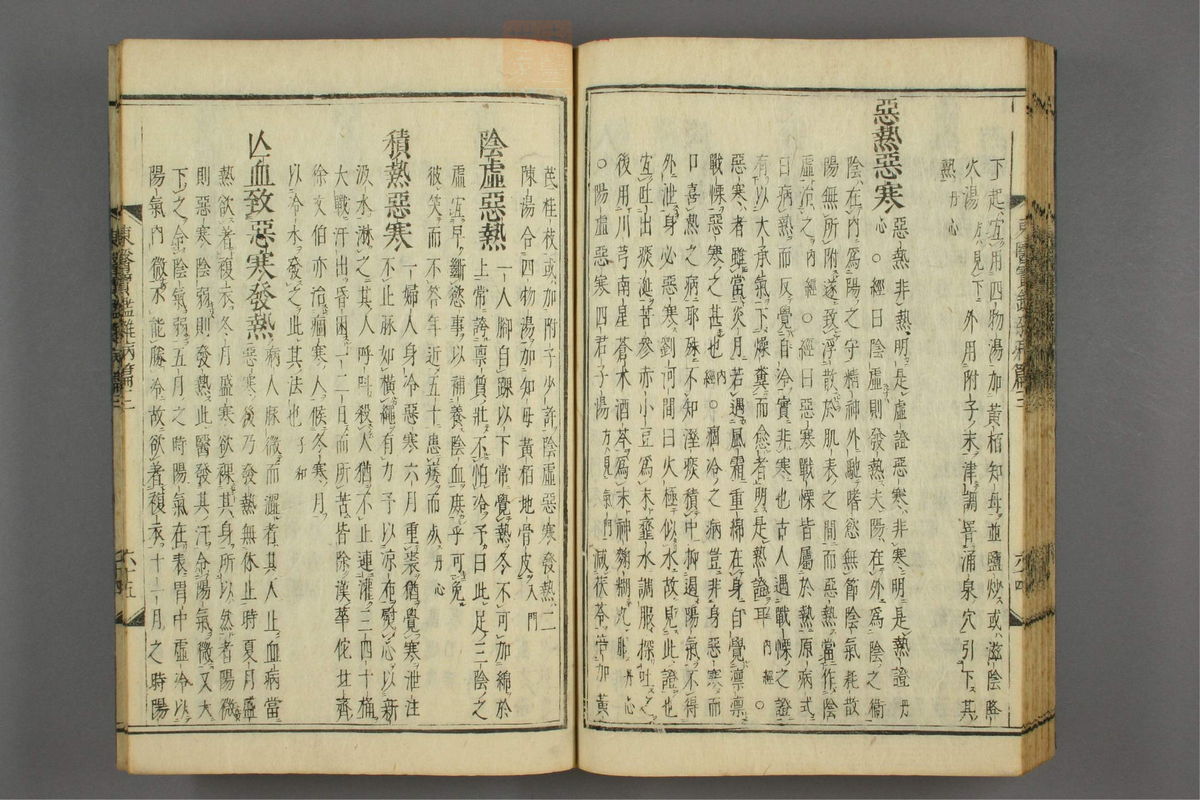 下起宜用四物湯加黃栢知母並鹽炒或滋陰降
火湯方見下外用附子末津調塗涌泉穴引下其
熱丹心
惡熱惡寒
惡熱非熱明是虛證惡寒非寒明是熱證丹
心○經曰陰虛則發熱夫陽在外爲陰之衛
陰在內爲陽之守精神外馳嗜慾無節陰氣耗散
陽無所附遂致浮散於肌表之間而惡熱當作陰
虛治之內經○經曰惡寒戰慄皆屬於熱原病式
曰病熱而反覺自冷實非寒也古人遇戰慄之證
有以大承氣下燥糞而愈者明是熱證耳內經○
惡寒者雖當炎月若遇風霜重綿在身自覺凜凜
戰慄惡寒之甚也內經○㵎冷之病豈非身惡寒而
口喜熱之病耶殊不知溼痰積中抑遏陽氣不得
外泄身必惡寒劉河間曰火極似水故見此證也
宜吐出痰涎苦參赤小豆爲末虀水調服探吐之
後用川芎南星蒼朮酒芩爲末神麴糊丸服丹心
○陽虛惡寒四君子湯方見氣門減茯苓倍加黃
芪桂枝或加附子少許陰虛惡寒發熱二
陳湯合四物湯加知母黃栢地骨皮入門
陰虛惡熱
一人腳自踝以下常覺熱冬不可加綿於
上常誇稟質壯不怕冷予曰此足三陰之
虛宜早斷慾事以補養陰血庶乎可免
彼笑而不答年近五十患痿而死丹心
積熱惡寒
一婦人身冷惡寒六月重裘猶覺寒泄注
不止脉如橫繩有力予以凉布熨心以新
汲水淋之其人呼叫殺人猶不止連灌三四十桶
大戰汗出昏困一二日而所苦皆除漢華佗北齊
徐文伯亦治痼寒人候冬寒月
以冷水發之此其法也子和
亾血致惡寒發熱
病人脉微而澁者其人亾血病當
惡寒後乃發熱無休止時夏月盛
熱欲著複衣冬月盛寒欲裸其身所以然者陽微
則惡寒陰弱則發熱此醫發其汗令陽氣微又大
下之令陰氣弱五月之時陽氣在表胃中虛冷以
陽氣內微不能勝冷故欲著複衣十一月之時陽